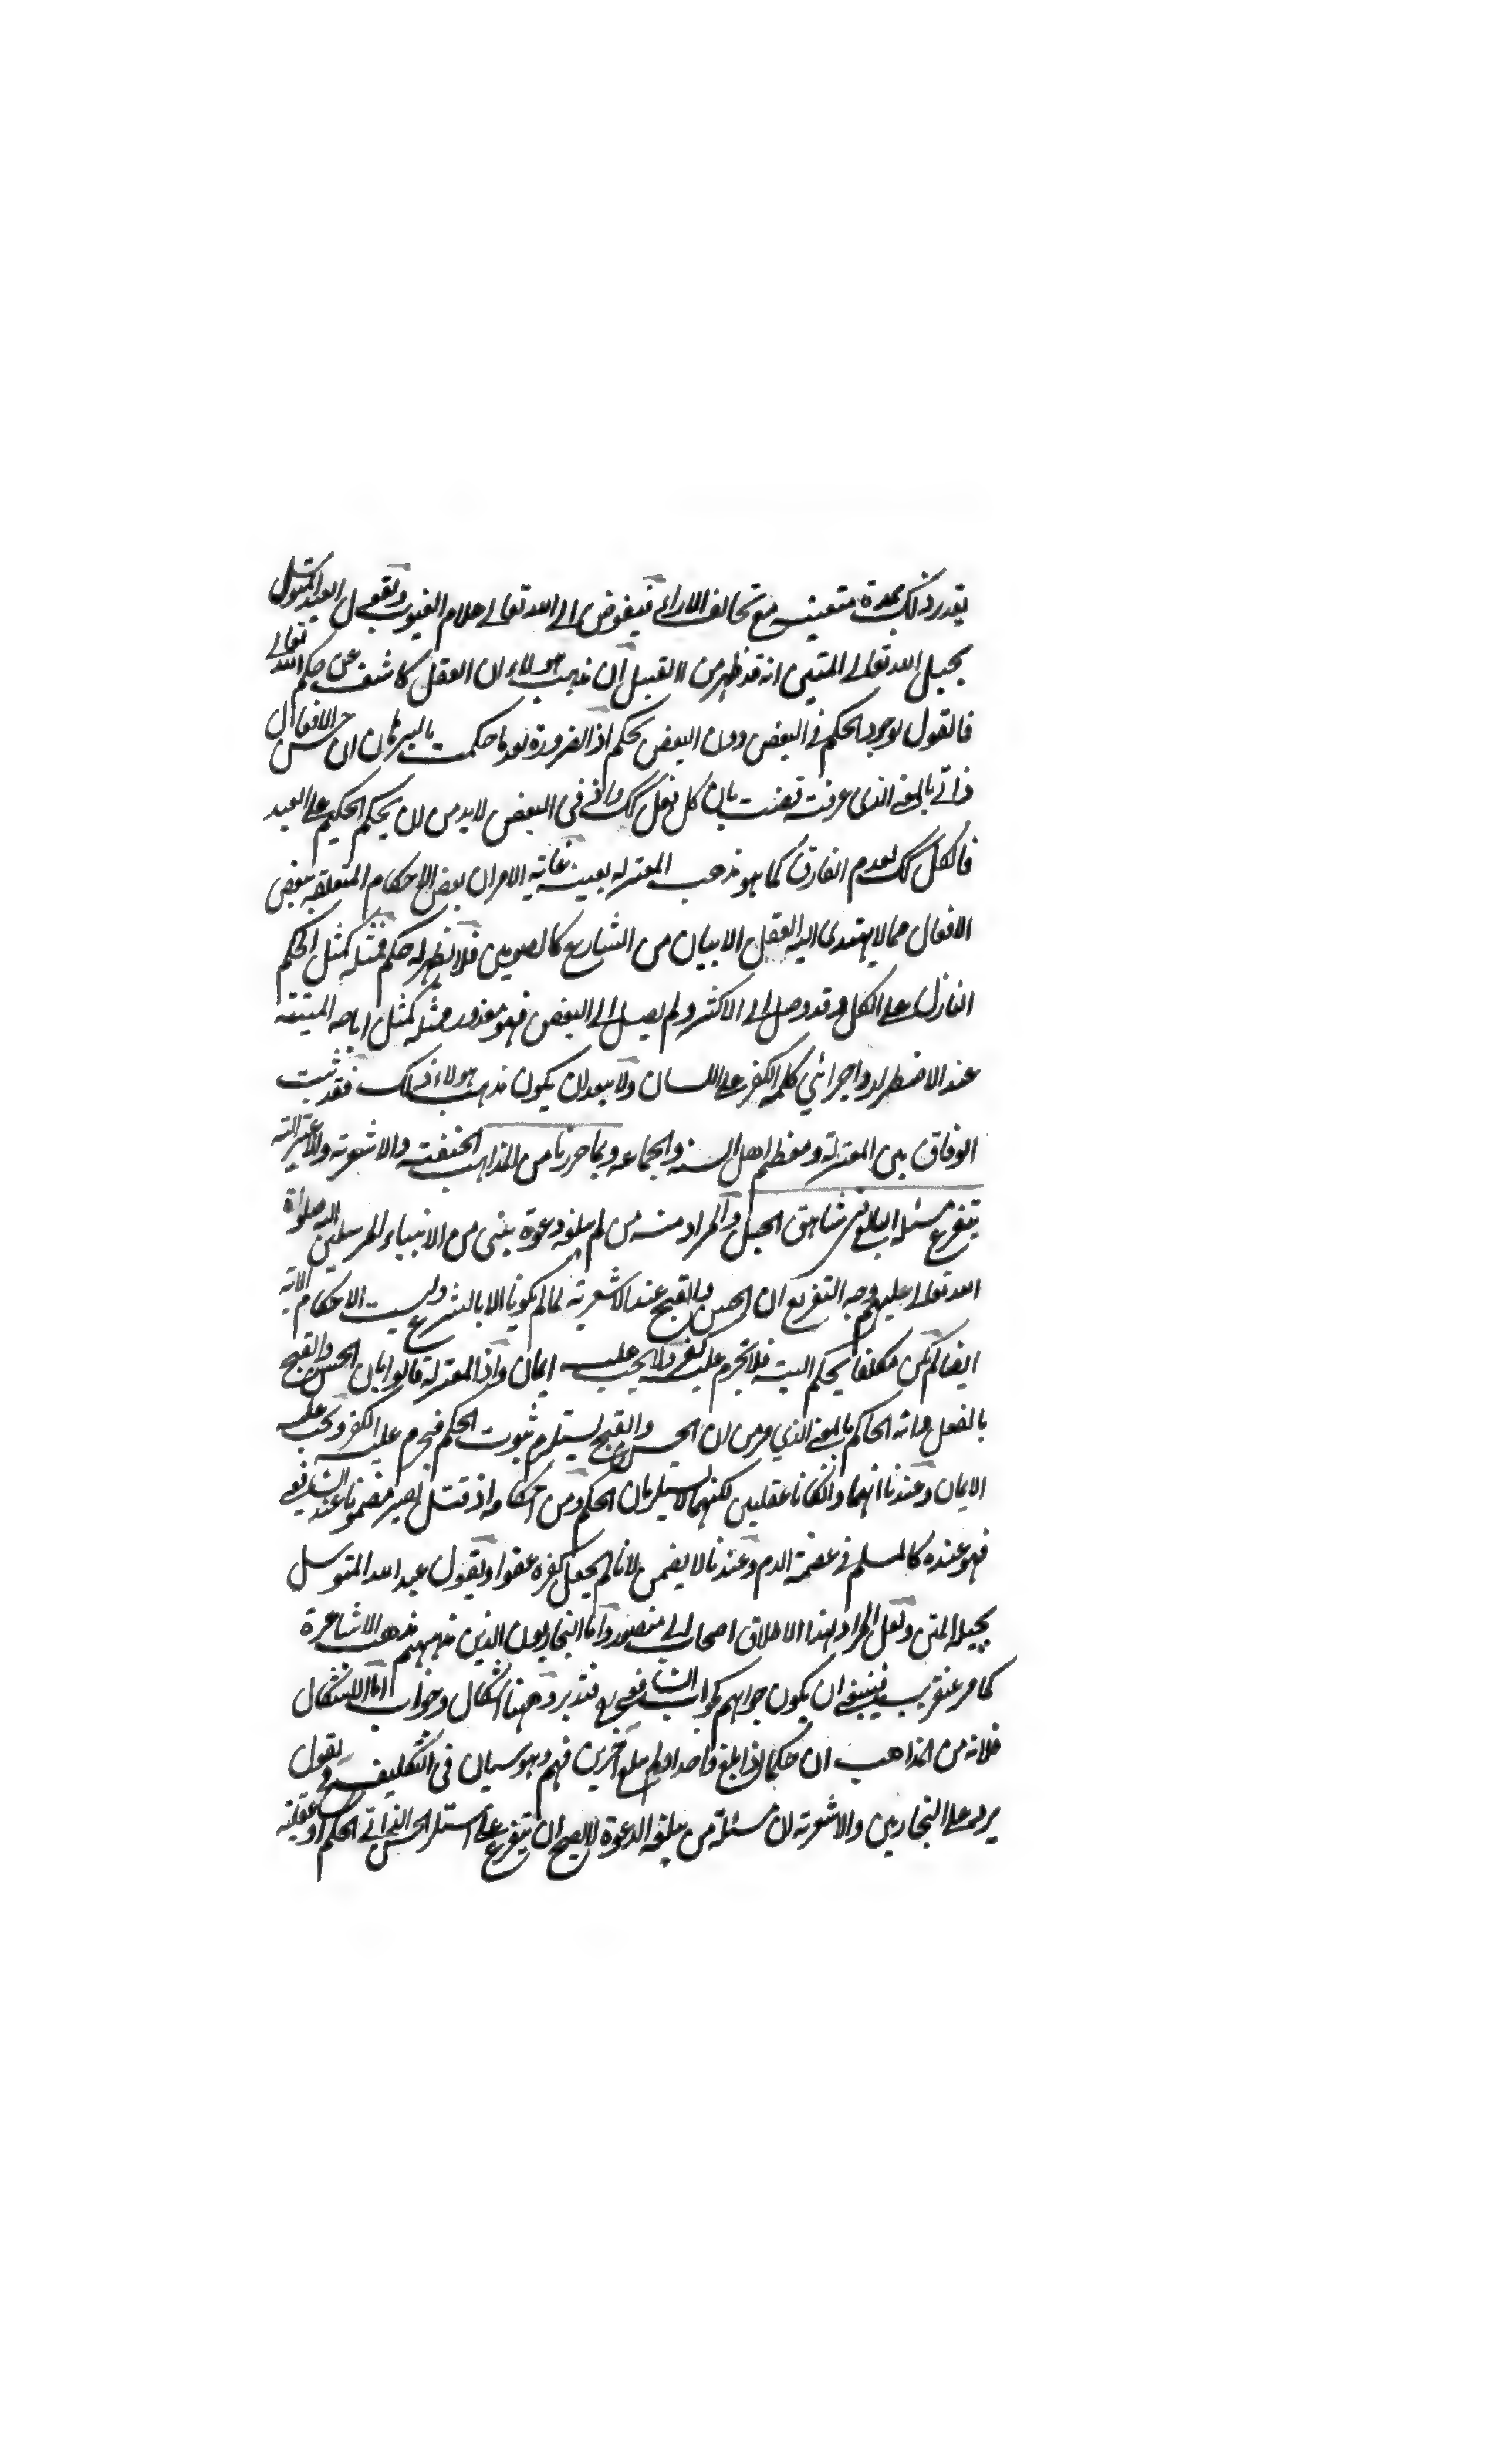 يقدر ذلك بمدة متعينة مع تخالف الاراء فيفوض الى الله تعالى علام الغيوب ويقول العبد المتوسل
بحبل الله تعالى المتين انه قد ظهر من القبيل ان مذهب هولاء ان العقل كاشف عن حكم الله تعالى
فالقول بوجود الحكم في البعض دون البعض تحكم اذ الضرورة بعد ما حكمت بالبرهان ان حسن الافعال
ذاتي بالمعنى الذي عرفت قضت بان كل فعل كك وانه في البعض لابد من ان يحكم الحكيم على العبد
فالكل كك لعدم الفارق كما هو مذهب المعتزله بعينه غاية الامر ان بعض الاحكام المتعلقه ببعض
الافعال مما لا يهتدى اليه العقل الا ببيان من الشارع كالصومين فلا يظهر له حكم فمثله كمثل الحكم
النازل على الكل وقد وصل الى الاكثر ولم يصل الى البعض فهو معذور ومثله كمثل اباحه الميتة
عند الاضطرار واجراء كلمه الكفر على اللسان ولا يبعد ان يكون مذهب هولاء ذلك فقد ثبت
الوفاق بين المعتزلة ومعظم اهل السنه والجماعه وبما حررنا من المذاهب الحنفية والاشعرية والاعتزالية
يتفرع مسئلة البالغ في شاهق الجبل والمراد منه من لم يبلغه دعوة نبي من الانبياء المرسلين صلواة
الله تعالى عليهم وجه التفريع ان الحسن والقبح عند الاشعرية لما لم يكونا الا بالشرع وليست الاحكام الا به
ايضا لم يكن مكلفا بحكم البته فلا يحرم عليه كفر ولا يجب عليه ايمان واذ المعتزلة قالوا بان الحسن والقبح
بالفعل وانه الحاكم بالمعنى الذي مر من ان الحسن والقبح يستلزم ثبوت الحكم فيحرم عليه الكفر ويجب عليه
الايمان وعندنا انهما وان كانا عقليين لكنهما لا يستلزمان الحكم ومن احكامه اذ قتل يصير مضمونا عند الشافعي
فهو عنده كالمسلم في عصمة الدم وعندنا لا يضمن لانا لم نجعل كفره عفوا ويقول عبد الله المتوسل
بحبله المتين ولعل المراد بهذا الاطلاق اصحاب ابي منصور واما النجاريون الذين مذهبهم مذهب الاشاعرة
كما مر عنقريب فينبغي ان يكون جوابهم كجواب الشافعي رح فتدبر وههنا اشكال وجواب اما الاشكال
فلانه من المذاهب ان حكما اذا بلغ واحدا ولم يبلغ آخرين فهم وهو سيان في التكليف وح يقول
يرد على النجاريين والاشعرية ان مسئلة من يبلغه الدعوة لا يصح ان يتفرع على استلزام الحسن الذاتي الحكم او عقليته